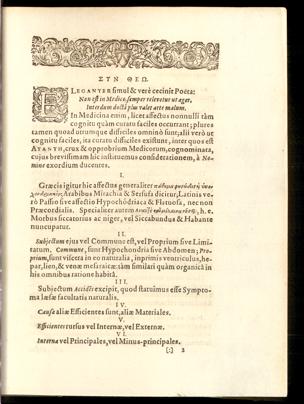 ΣΥΝ ΘΕΩ.
ELEGANTER simul & verè cecinit Poeta:
Non est in Medico semper relevetur ut æger,
Interdum doctâ plus valet arte malum.
In Medicina enim, licet affectus nonnulli tàm
cognitu quàm curatu faciles occurrant; plures
tamen quoad utrumque difficiles omninò sunt; alii verò ut
cognitu faciles, ita curatu difficiles existunt, inter quos est
crux & opprobrium Medicorum, cognominata,
cujus brevissimam hìc instituemus considerationem, à No-
mine exordium ducentes.
I.
Græcis igitur hic affectus generaliter
Arabibus Mirachia & Sersusa dicitur, Latinis ve-
rò Passio sive affectio Hypochondriaca & Flatuosa, nec non
Præcordialis. Specialiter autem h. e.
Morbus siccatorius ac niger, vel Siccabundus & Habante
nuncupatur.
II.
Subjectum ejus vel Commune est, vel Proprium sive Limi-
tatum. Commune, sunt Hypochondria sive Abdomen; Pro-
prium, sunt viscera in eo naturalia, inprimis ventriculus, he-
par, lien, & venæ mesaraicæ: tàm similari quàm organicâ in
his omnibus ratione habitâ.
III.
Subjectum Accidens excipit, quod statuimus esse Sympto-
ma læsæ facultatis naturalis.
IV.
Causæ aliæ Efficientes sunt, aliæ Materiales.
V.
Efficientes rursus vel Internæ, vel Externæ.
VI.
Internæ vel Principales, vel Minus-principales.